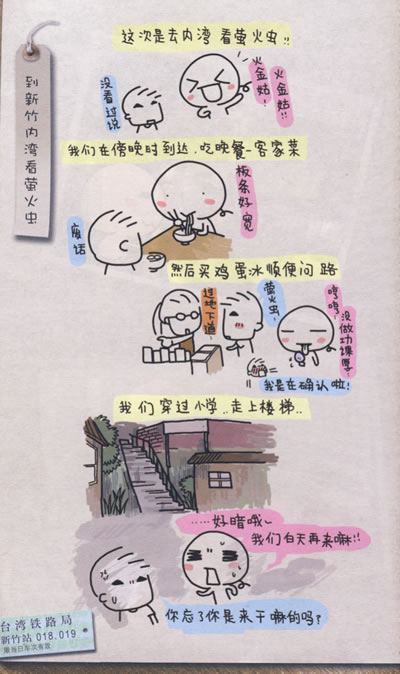 到新竹内湾看萤火虫
这次是去内湾看萤火虫!!
没看过说
火金姑!
火金姑!!
我们在傍晚时到达.吃晚餐-客家菜
板条好宽
废话
然后买鸡蛋冰顺便问路
走地下道!
萤火虫!
哼哼!
没做功课厚!
我是在确认啦!
我们穿过小学..走上楼梯..
……好暗哦~
我们白天再来嘛!!
你忘了你是来干嘛的吗?
台湾铁路局
新竹站 018.019
限当日车次有效